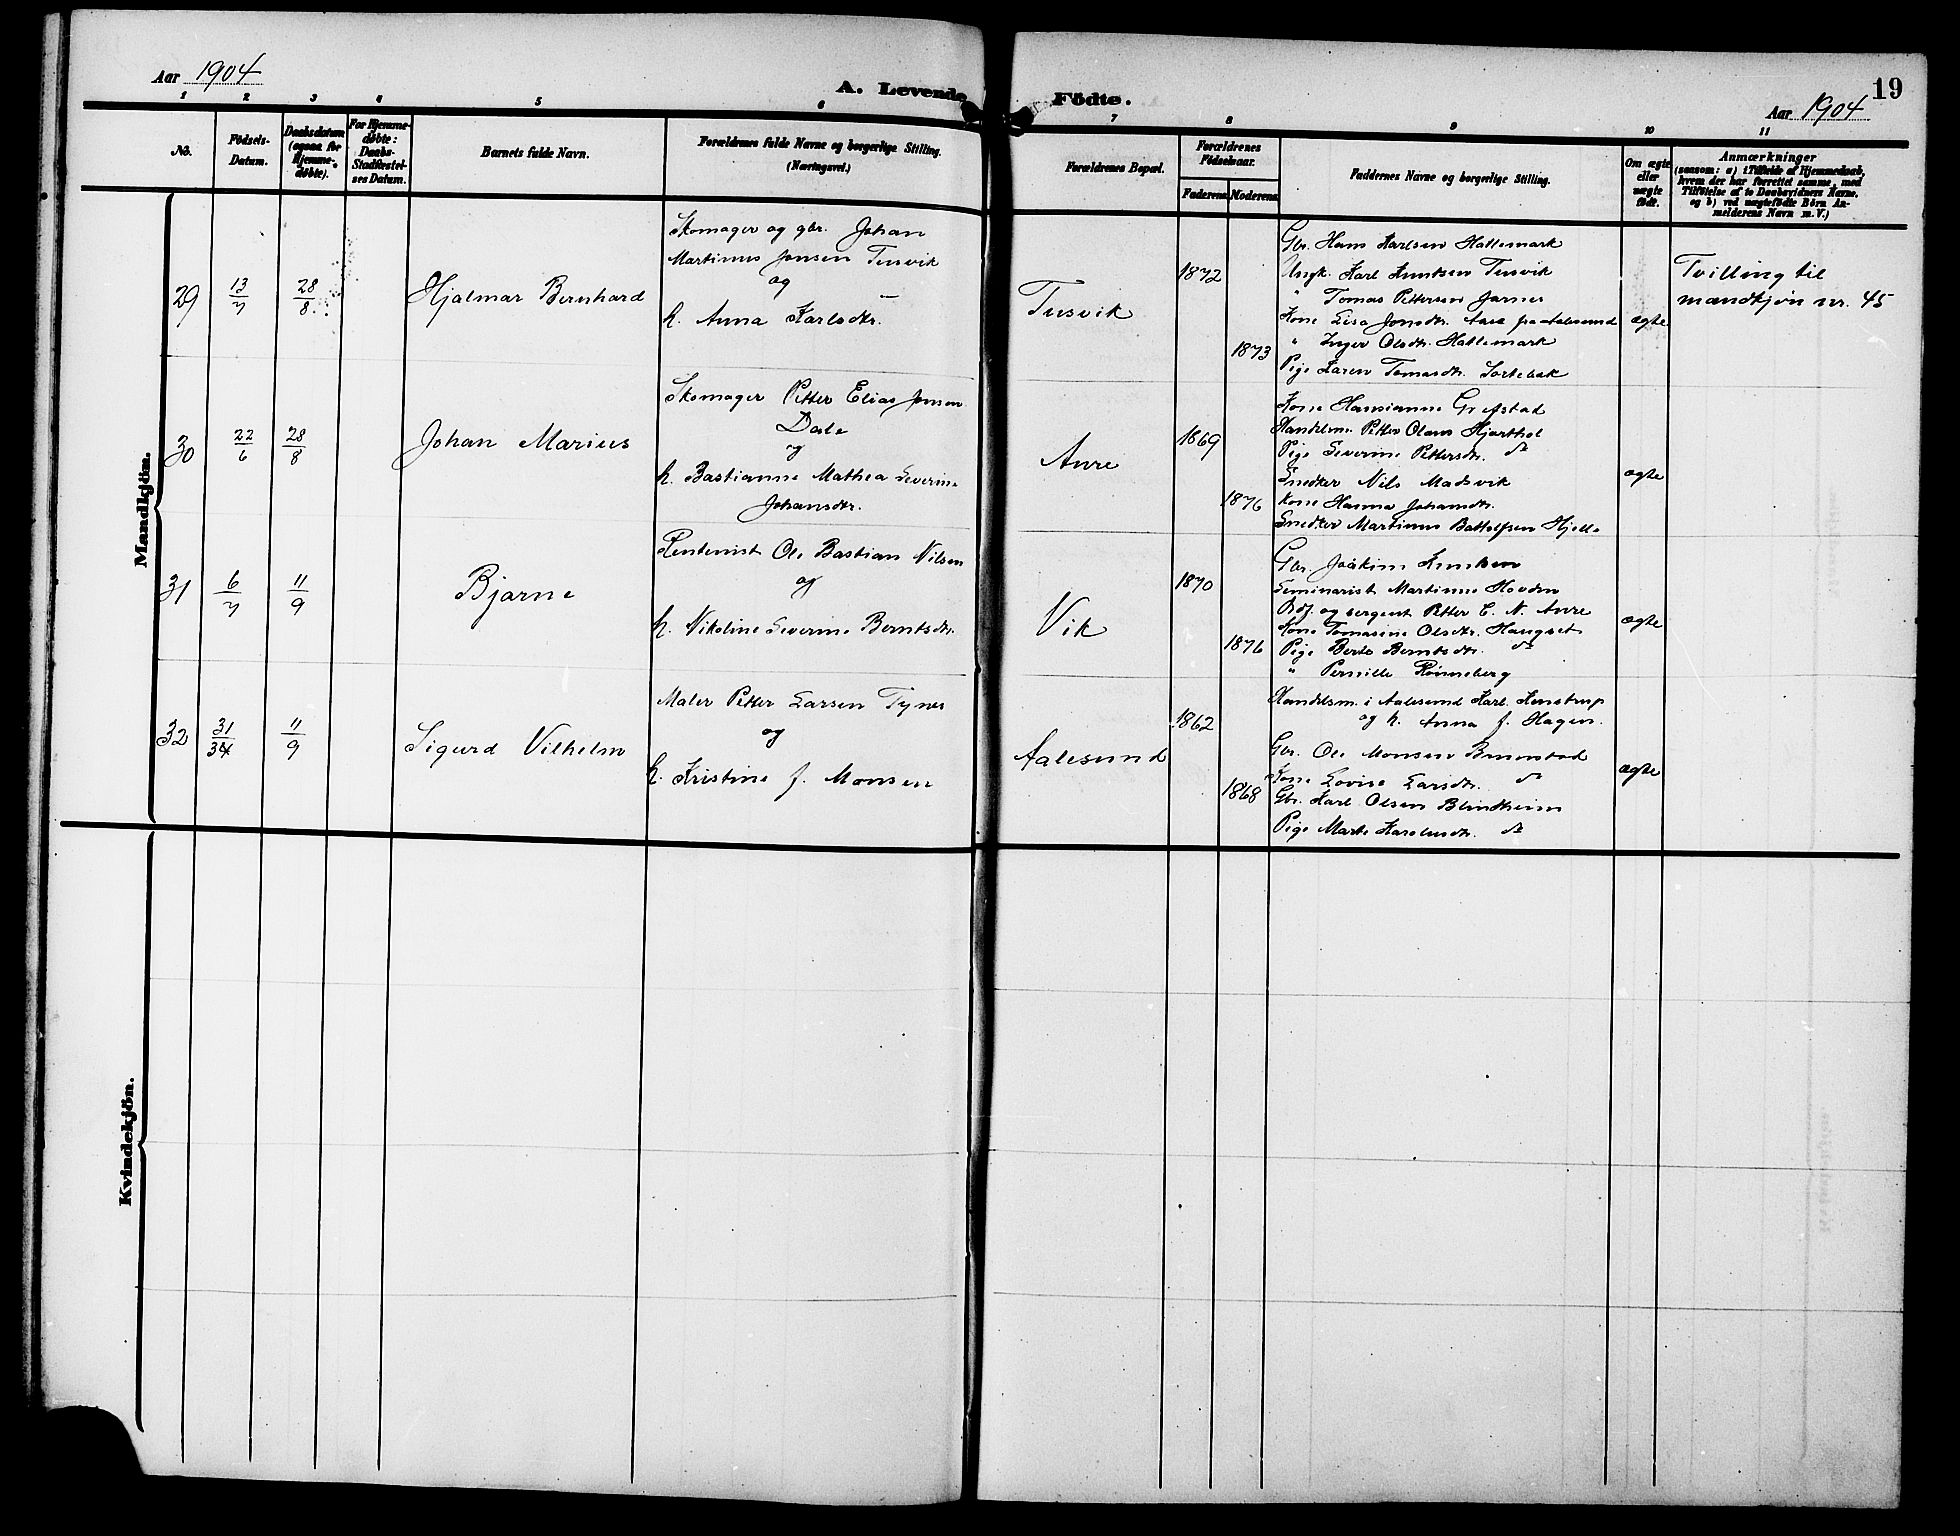 Aar 1904
A. Levende Födte.
Aar 1904
19
1 2 3 4 5 6 7 8 9 10 11
No.
Födsels-
Datum.
Daabsdatum
(ogsaa for
Hjemme-
døbte).
For Hjemme-
døbte:
Daabs-
Stadfæstel-
ses Datum.
Barnets fulde Navn.
Forældrenes fulde Navne og borgerlige Stilling.
(Næringsvei.)
Forældrenes Bopæl.
Forældrenes
Födselsaar.
Faderens. Moderens.
Faddernes Navne og borgerlige Stilling.
Om ægte
eller
uægte
født.
Anmærkninger
(saasom: a) i Tilfælde af Hjemmedaab,
hvem der har forrettet samme, med
Tilföielse af to Daabsvidners Navne,
og b) ved uægtefödte Börn An-
melderens Navn m.V.)
Mandkjön.
29
13/7
28/8
Hjalmar Bernhard
Skomager og gbr. Johan
Martinus Jonsen Tusvik
og
h. Anna Karlsdtr.
Tusvik
1872
1873
Gbr. Hans Karlsen Hattemark
Ungk. Karl Knutsen Tusvik
" Tomas Pettersen Jarnes
Kone Lisa Jonsdtr. Aase fra Aalesund
" Inger Olsdtr. Hattemark
Pige Karen Tomasdtr. Sortebak
ægte
Tvilling til
mandkjøn nr. 45
30
22/6
28/8
Johan Marius
Skomager Petter Elias Jonsen
Dale
og
h. Bastianne Mathea Severine
Johansdtr.
Aure
1869
1876
Kone Hansianne Grefstad
Handelsm. Petter Olaus Hjorthol
Pige Severine Pettersdtr. do
Snedker Nils Madsvik
Kone Hanna Johansdtr.
Snedker Martinus Bottolfsen Hjelle
ægte
31
6/7
11/9
Bjarne
Rentenist Ole Bastian Nilsen
og
h. Nikoline Severine Berntsdtr.
Vik
1870
1876
Gbr. Joakim Knutsen
Seminarist Martinus Hovden
Bdf. og sergent Petter E. N. Aure
Kone Tomasine Olsdtr. Haugset
Pige Berte Berntsdtr. do
" Pernille Rønneberg
ægte
32
31/
11/9
Sigurd Vilhelm
Maler Petter Larsen Tynes
og
h. Kristine f. Monsen
Aalesund
1862
1868
Handelsm. i Aalesund Karl Kenstrup
og h. Anna f. Hagen.
Gbr. Ole Monsen Brunstad
Kone Lovise Larsdtr. do
Gbr. Karl Olsen Blindheim
Pige Marte Karolusdtr. do
ægte
Kvindekjön.